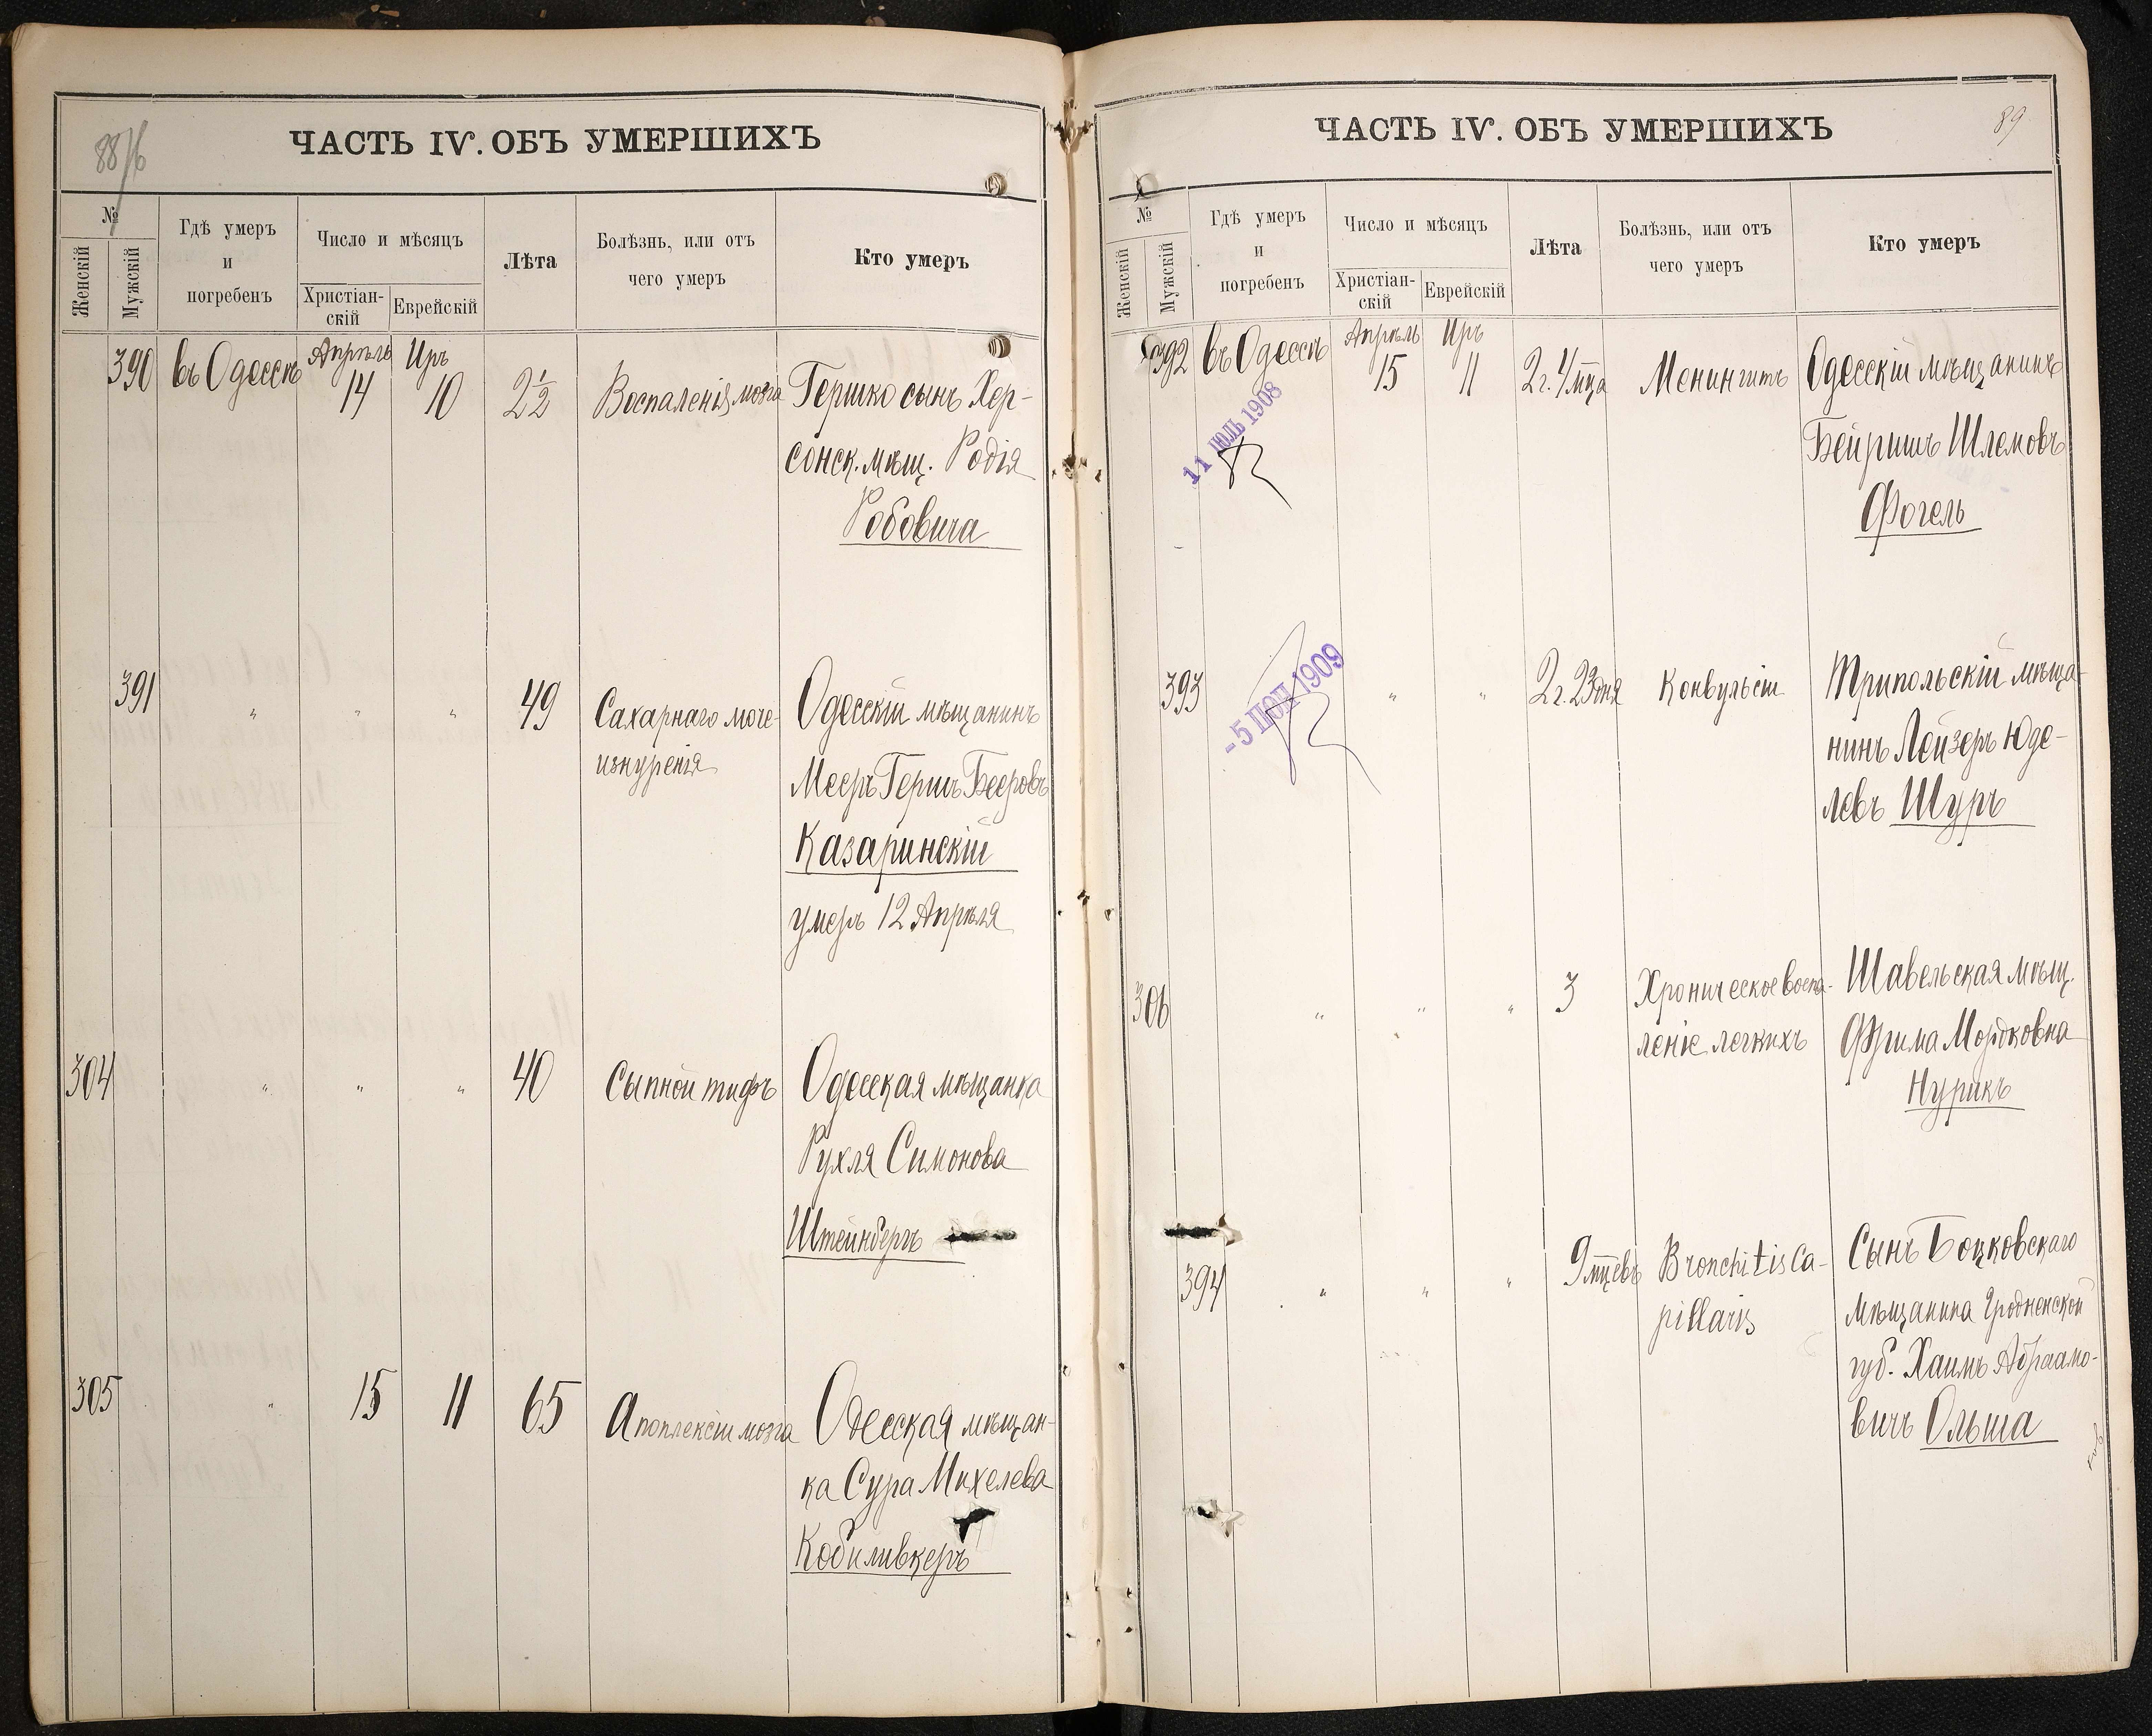 88/6
ЧАСТЬ IV. ОБЪ УМЕРШИХЪ
№
Женскій
Мужскій
Гдѣ умеръ
и
погребенъ
Число и мѣсяцъ
Христіан-
скій
Еврейскій
Лѣта
Болѣзнь, или отъ
чего умеръ
Кто умеръ
390 въ Одессѣ Апрѣль 14 Иръ 10 2½ Воспаленія мозга Гершко сынъ Хер-
сонск. мѣщ. Родія
Робовича
391 " " " 49 Сахарнаго моче- Одесскій мѣщанинъ
изнуренія Мееръ Гершъ Бееровъ
Казаринскій
умеръ 12 Апрѣля
304 " " " 40 Сыпной тифъ Одесская мѣщанка
Рухля Симонова
Штейнбергъ
305 " 15 11 65 Апоплексіи мозга Одесская мѣщан-
ка Сура Михелева
Кобиливкеръ
89
ЧАСТЬ IV. ОБЪ УМЕРШИХЪ
№
Женскій
Мужскій
Гдѣ умеръ
и
погребенъ
Число и мѣсяцъ
Христіан-
скій
Еврейскій
Лѣта
Болѣзнь, или отъ
чего умеръ
Кто умеръ
392 въ Одессѣ Апрѣль 15 Иръ 11 2 г. 4 м-ца Менингитъ Одесскій мѣщанинъ
11 ІЮЛЬ 1908
Бейришъ Шлемовъ
Фогель
393 " " 2 г. 23 дня Конвульсіи Трипольскій мѣща-
-5 ІЮН 1909
нинъ Лейзеръ Юде-
левъ Шуръ
306 " " " 3 Хроническое воспа- Шавельская мѣщ.
леніе легкихъ Фрима Мордковна
Нурикъ
394 " " " 9 м-цевъ Bronchitis Ca- Сынъ Боцковскаго
pillaris мѣщанина Гродненской
губ. Хаимъ Абраамо-
вичъ Ольша